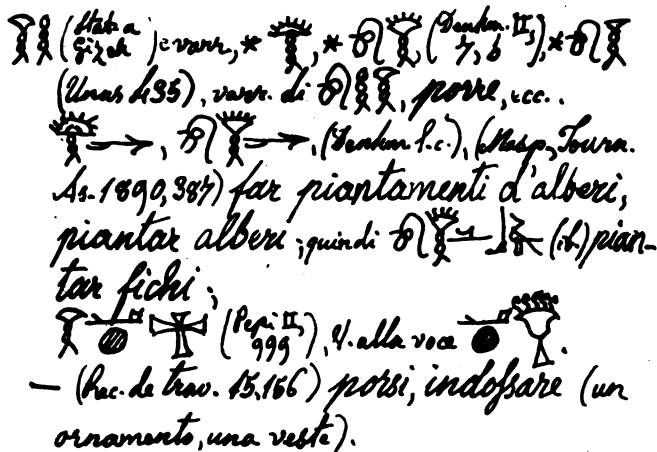 (Stat. a Gizeh) = varr., *, * (Denkm. II, 7, b), *
(Unas 435), varr. di, porre, ecc..
, , (Denkm l.c.), (Masp, Journ.
As. 1890, 387) far piantamenti d'alberi,
piantar alberi; quindi (ib.) pian-
tar fichi;
(Pepi II, 999), V. alla voce .
— (Rec. de trav. 15,166) porsi, indossare (un
ornamento, una veste).